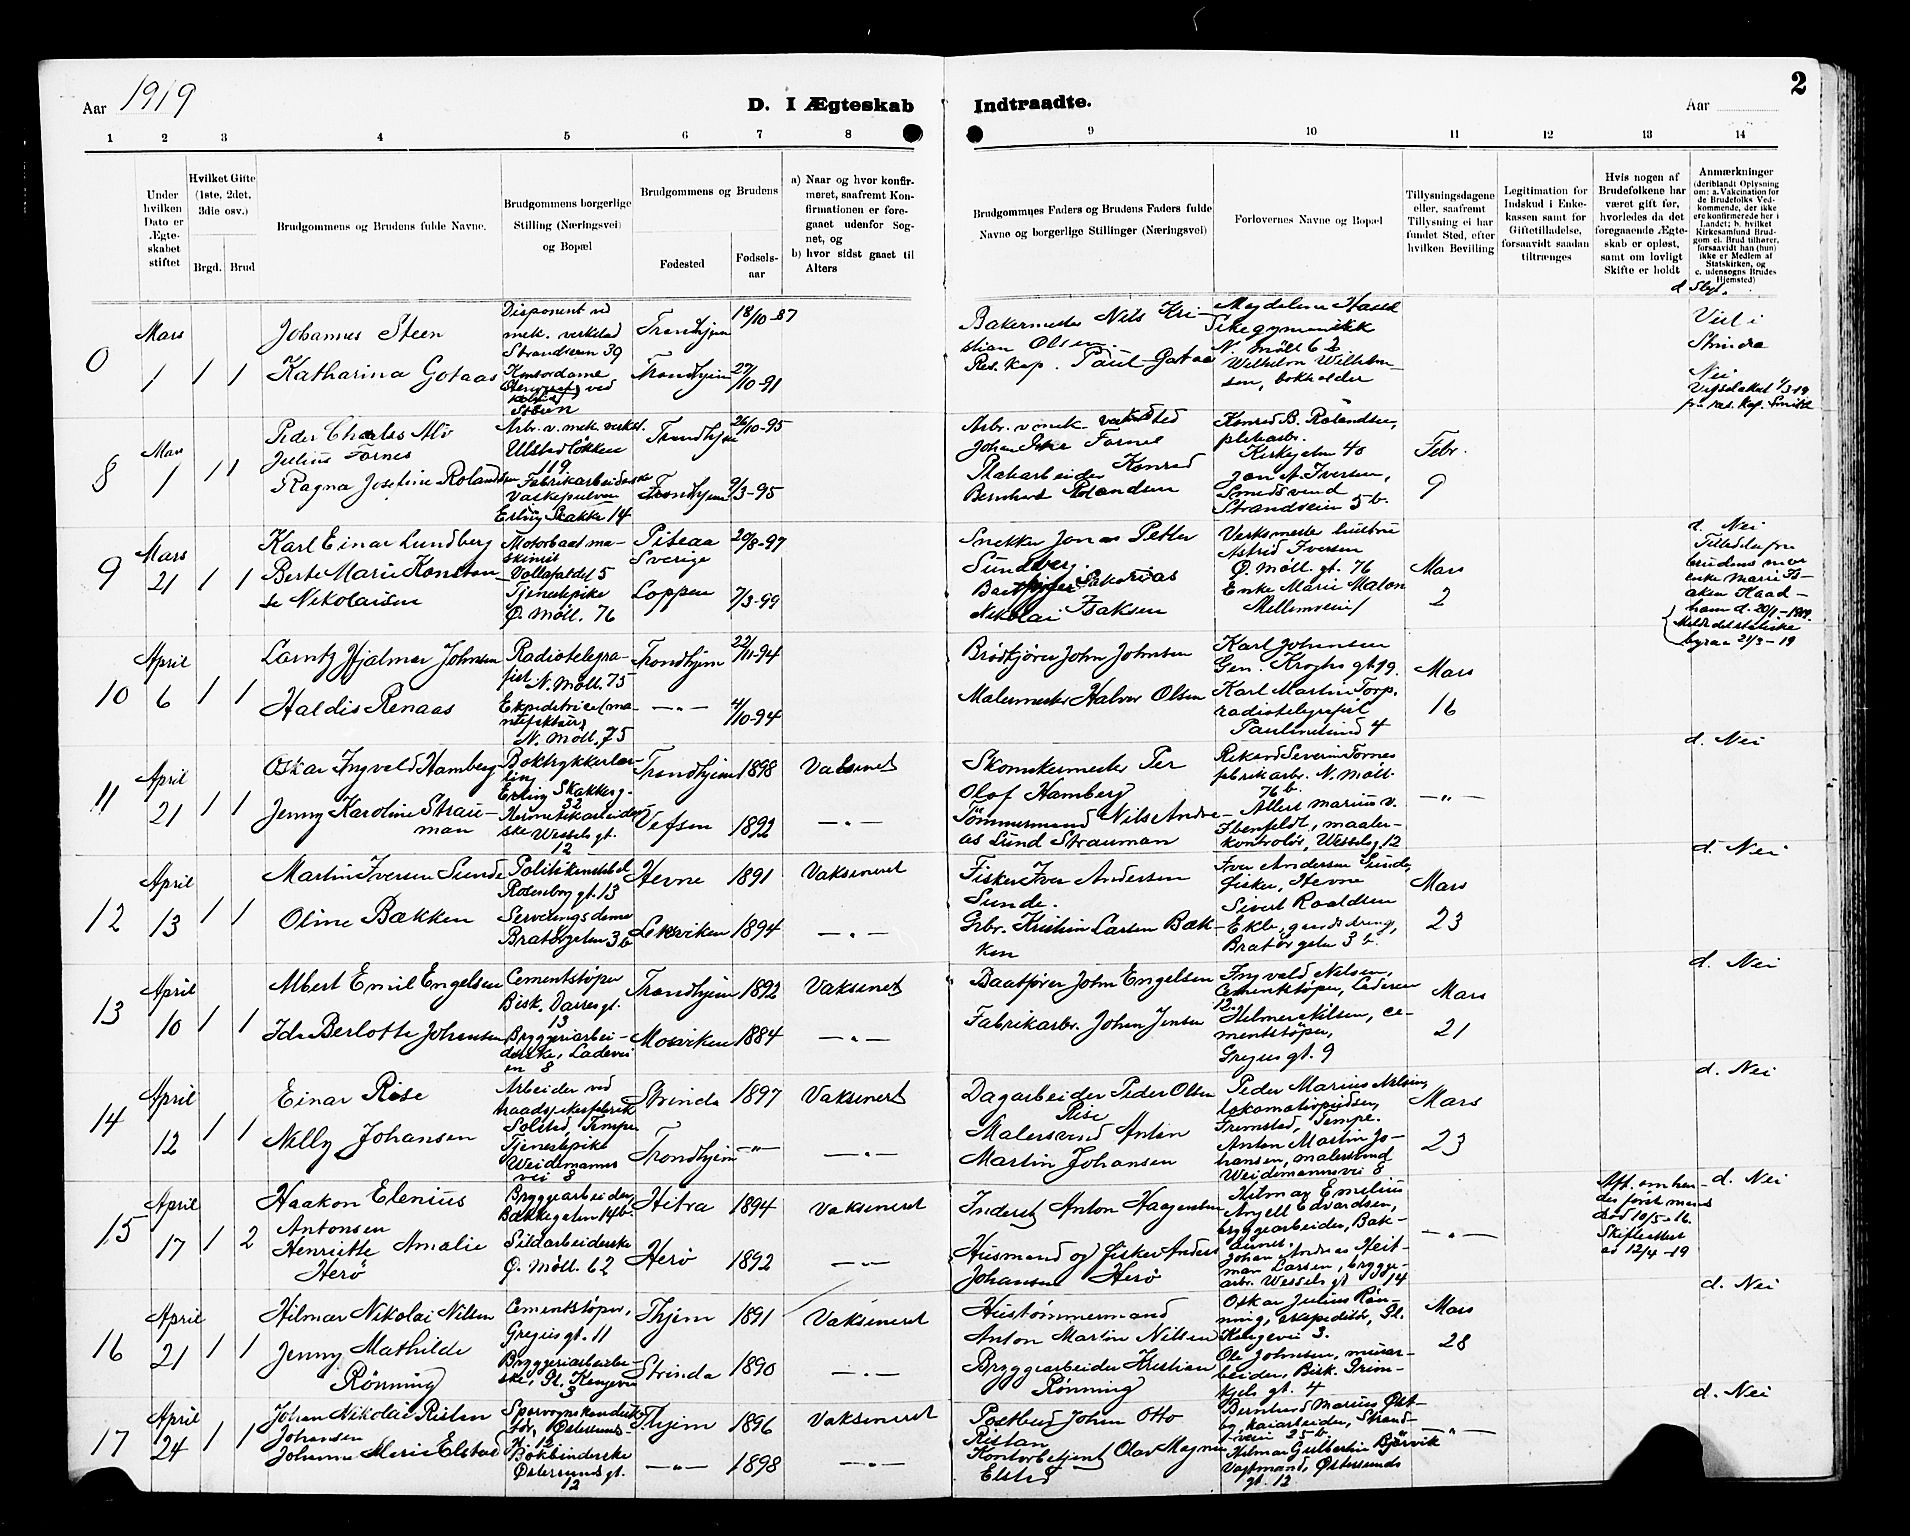 2
Aar 1919
D. I Ægteskab Indtraadte.
Aar
1 2 3 4 5 6 7 8 9 10 11 12 13 14
Under hvilken Dato er Ægteskabet stiftet
Hvilket Gifte (1ste, 2det, 3die osv.)
Brgd. Brud
Brudgommens og Brudens fulde Navne.
Brudgommens borgerlige Stilling (Næringsvei) og Bopæl
Brudgommens og Brudens
Fødested
Fødselsaar
a) Naar og hvor konfirmeret, saafremt Konfirmationen er foregaaet udenfor Sognet, og
b) hvor sidst gaaet til Alters
Brudgommens Faders og Brudens Faders fulde Navne og borgerlige Stillinger (Næringsvei)
Forlovernes Navne og Bopæl
Tillysningsdagene eller, saafremt Tillysning ei har fundet Sted, efter hvilken Bevilling
Legitimation for Indskud i Enkekassen samt for Giftetilladelse, forsaavidt saadan tiltrænges
Hvis nogen af Brudefolkene har været gift før, hvorledes da det foregaaende Ægteskab er opløst, samt om lovligt Skifte er holdt
Anmærkninger
(deriblandt Oplysning om: a. Vakcination for de Brudefolks Vedkommende, der ikke ere konfirmerede her i Landet; b. hvilket Kirkesamfund Brudgom el. Brud tilhører, forsaavidt han (hun) ikke er Medlem af Statskirken, og c. udensogns Brudes Hjemsted)
d. Slgt.
0
Mars
1
1 1
Johannes Steen
Katharina Gotaas
Disponent ved
mek. verksted
Strandveien 39
Kontordame
ved
Steen
Trondhjem
18/10-87
Trondhjem
27/10-91
Bakermester Nils Kri-
stian Olsen.
Res. kap. Paul Gotaas
Magdalene Hassel
Sykegymnastikk
N. Möll 62
Wilhelm Wilhelm-
sen, bokholder
Viet i
Strinda
Nei
Vigselattest 1/3 19
fra res. kap. Smith
8
Mars
1
1 1
Peder Charles Alv
Julius Fornes
Ragna Josefine Rolandsen
Arb. v. mek. verkst.
Ulstadløkken
119
Fabrikarbeiderske
Vaskepulver
Erling Skakke 14
Trondhjem
26/10-95
Trondhjem
9/3-95
Arb. v. mek. verksted
Johan Fornes
Platearbeider Konrad
Bernhard Rolandsen
Konrad B. Rolandsen,
platearb.
Kirkegaten 40
Jon A. Iversen,
Smedsvend
Strandveien 5 b.
Febr.
9
9
Mars
21
1 1
Karl Einar Lundberg
Berte Marie Konstan-
se Nikolaisen
Motorbaatma-
skinist
Vollafaldet 5
Tjenestepike
Ø. Möll. 76
Piteaa
Sverige
20/8-97
Loppen
7/3-99
Snekker Jonas Petter
Lundberg.
Sakorias
Nikolai Isaksen
Verksmester hustru
Astrid Iversen
Ø. Möll. gt. 76
Enke Marie Malon
Mellemveien 1
Mars
2
d. Nei
Tilladelse fra
brudens mor
enke Marie Is-
aksen Haad-
ham d. 20/1-1919.
Meldt det statistiske
byraa 21/3-19
10
April
6
1 1
Lorntz Hjalmar Johnsen
Haldis Renaas
Radiotelegra-
fist N. Möll. 75
Ekspeditrice (ma-
nufaktur)
N. Möll. 75
Trondhjem
22/11-94
— " —
4/10-94
Brödkjører John Johnsen
Malermester Halvor Olsen
Karl Johansen
Gen. Kroghs gt. 19.
Karl Martin Torp,
radiotelegrafist
Paulinelund 4
Mars
16
11
April
21
1 1
Oskar Ingvald Hamberg
Jenny Karoline Strau-
man
Boktrykkerlær-
ling
Erling Skakkes g.
32
Hermetikarbeider-
ske Wessels gt.
12
Trondhjem 1898 Vaksinert
Vefsen 1892 — " —
Skomakermester Per
Olof Hamberg
Tömmermand Nils Andre-
as Lund Strauman
Rikard Severin Fornes
fabrikarb. N. Möll.
76 b.
Albert Marius v.
Ibenfeldt, maaler-
kontrolör, Wesselsg. 12
— " —
d. Nei
12
April
13
1 1
Martin Iversen Sunde
Oline Bækken
Politikonstabel
Rosenborg gt. 13
Serveringsdame
Bratörgaten 3 b
Hevne 1891 Vaksineret
Leksviken 1894 — " —
Fisker Iver Andersen
Sunde.
Grbr. Kristian Larsen Bæk-
ken
Iver Andersen Sunde,
fisker, Hevne
Sivert Roaldsen
Ekle, gaardsdreng,
Bratör gaten 3 b.
Mars
23
d. Nei
13
April
10
1 1
Albert Emil Engelsen
Ida Berlotte Johansen
Cementstöper
Bisk. Darres gt.
13
Bryggeriarbei-
derske, Ladevei-
en 8
Trondhjem 1892 Vaksineret
Mosviken 1884 — " —
Baatfører John Engelsen
Fabrikarbr. Johan Jensen
Ingvald Nilsen,
Cementstöper, Ladeveien
12.
Hilmer Nilsen, ce-
mentstöper,
Gregus gt. 9
Mars
21
d. Nei
14
April
12
1 1
Einar Rise
Nelly Johansen
Arbeider ved
traadspikerfabrik
Solstad, Tempe
Tjenestepike
Weidemanns
vei 8
Strinda 1897 Vaksineret
Trondhjem — " — — " —
Dagarbeider Peder Olsen
Rise
Malersvend Anton
Martin Johansen
Peder Marius Nilsen,
lokomotivpudser,
Fremstad, Tempe.
Anton Martin Jo-
hansen, malersvend
Weidemannsvei 8
Mars
23
d. Nei
15
April
17
1 2
Haakon Elenius
Antonsen
Henriette Amalie
Herö
Bryggearbeider,
Bakkegaten 14 b.
Sildarbeiderske
Ø. Möll. 62
Hitra 1894 Vaksineret
Herö 1892 — " —
Inderst Anton Haagensen
Husmand og fisker Anders
Johansen Herö
Hilmar Emelius
Angell Edvardsen,
bryggearbeider, Bak-
launet.
Johan Andreas Heit-
man Larsen, brygge-
arb. Wessels gt. 14
— " —
Aft. om hen-
des først. mands
död 10/5-16.
Skifteattest
av 12/4-19
d. Nei
16
April
21
1 1
Hilmar Nikolai Nilsen
Jenny Mathilde
Rönning
Cementstöper,
Gregus gt. 11
Bryggeriarbeider-
ske, Gl. Kongevei
3
Thjem 1891 Vaksineret
Strinda 1890 — " —
Hustømmermand
Anton Martin Nilsen
Bryggearbeider Kristian
Rönning
Oskar Julius Rön-
ning, ekspeditör, Gl.
Kongevei 3.
Ole Johnsen, murar-
beider, Bisk. Grim-
kjels gt. 4
Mars
28
d. Nei
17
April
24
1 1
Johan Nikolai Ristan
Johansen
Johanna Marie Elstad
Sporvognskonduk-
tör, Östersunds-
gt. 12
Bokbinderske
Östersunds gt.
12
Thjem 1896 Vaksineret
— " — 1898 — " —
Postbud Johan Otto
Ristan
Kontorbetjent Olav Magnus
Elstad
Bernhard Marius Öst-
by, kaiarbeider, Strand-
veien 25 b.
Hilmar Gulbertin Bjørvik
Vagtmand, Östersunds
gt. 12.
— " —
d. Nei